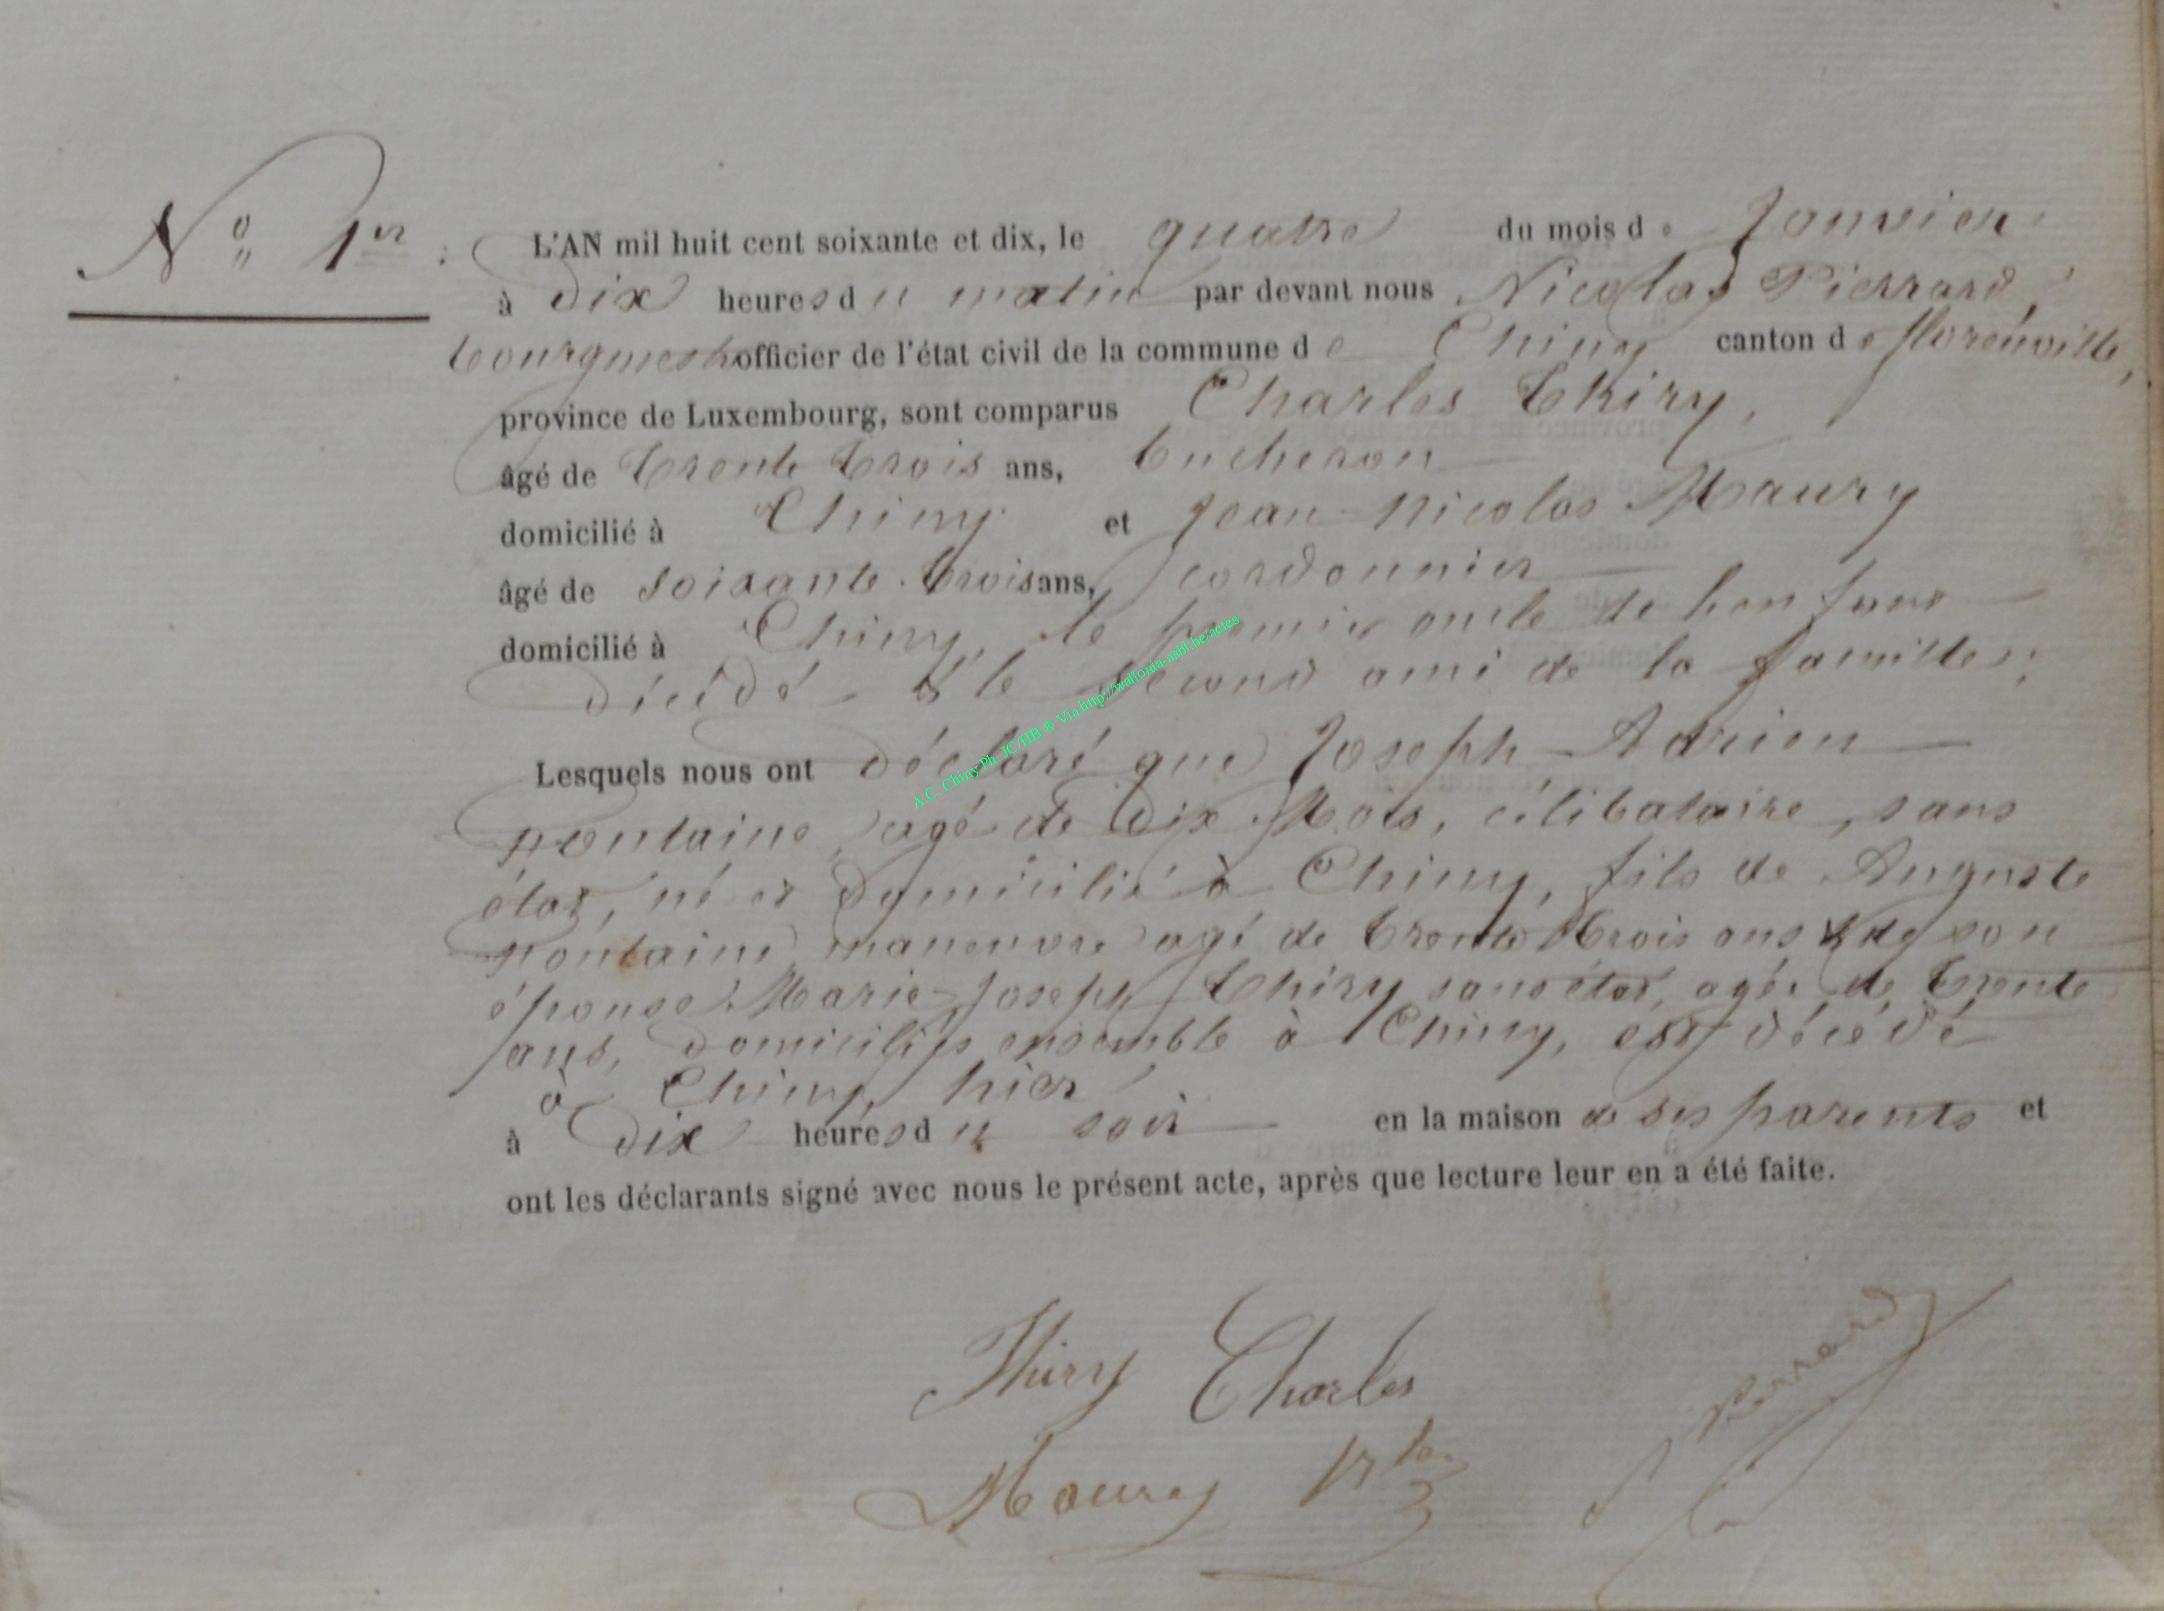 N° 1er
L'AN mil huit cent soixante et dix, le quatre du mois de Janvier
à dix heures du matin par devant nous Nicolas Pierrard,
bourgmestre officier de l'état civil de la commune de Chiny canton de florenville,
province de Luxembourg, sont comparus Charles Thiry,
âgé de trente trois ans, bucheron
domicilié à Chiny et Jean-Nicolas Maury
âgé de soixante-trois ans, cordonnier
domicilié à Chiny, le premier oncle de l'enfant
décédé & le second ami de la famille;
Lesquels nous ont déclaré que Joseph Adrien
pontaine, agé de dix Mois, célibataire, sans
état, né et domicilié à Chiny, fils de Auguste
pontaine manœuvre agé de trente trois ans & de son
épouse Marie-Joseph Thiry sans état, agée de trente
ans, domiciliés ensemble à Chiny, est décédé
à Chiny, hier
à dix heures du soir en la maison de ses parents et
ont les déclarants signé avec nous le présent acte, après que lecture leur en a été faite.
Thiry Charles
Maury
Pierrard
A.C. Chiny Ph. JC/HH ® Via http://wallonia-asbl.be/actes